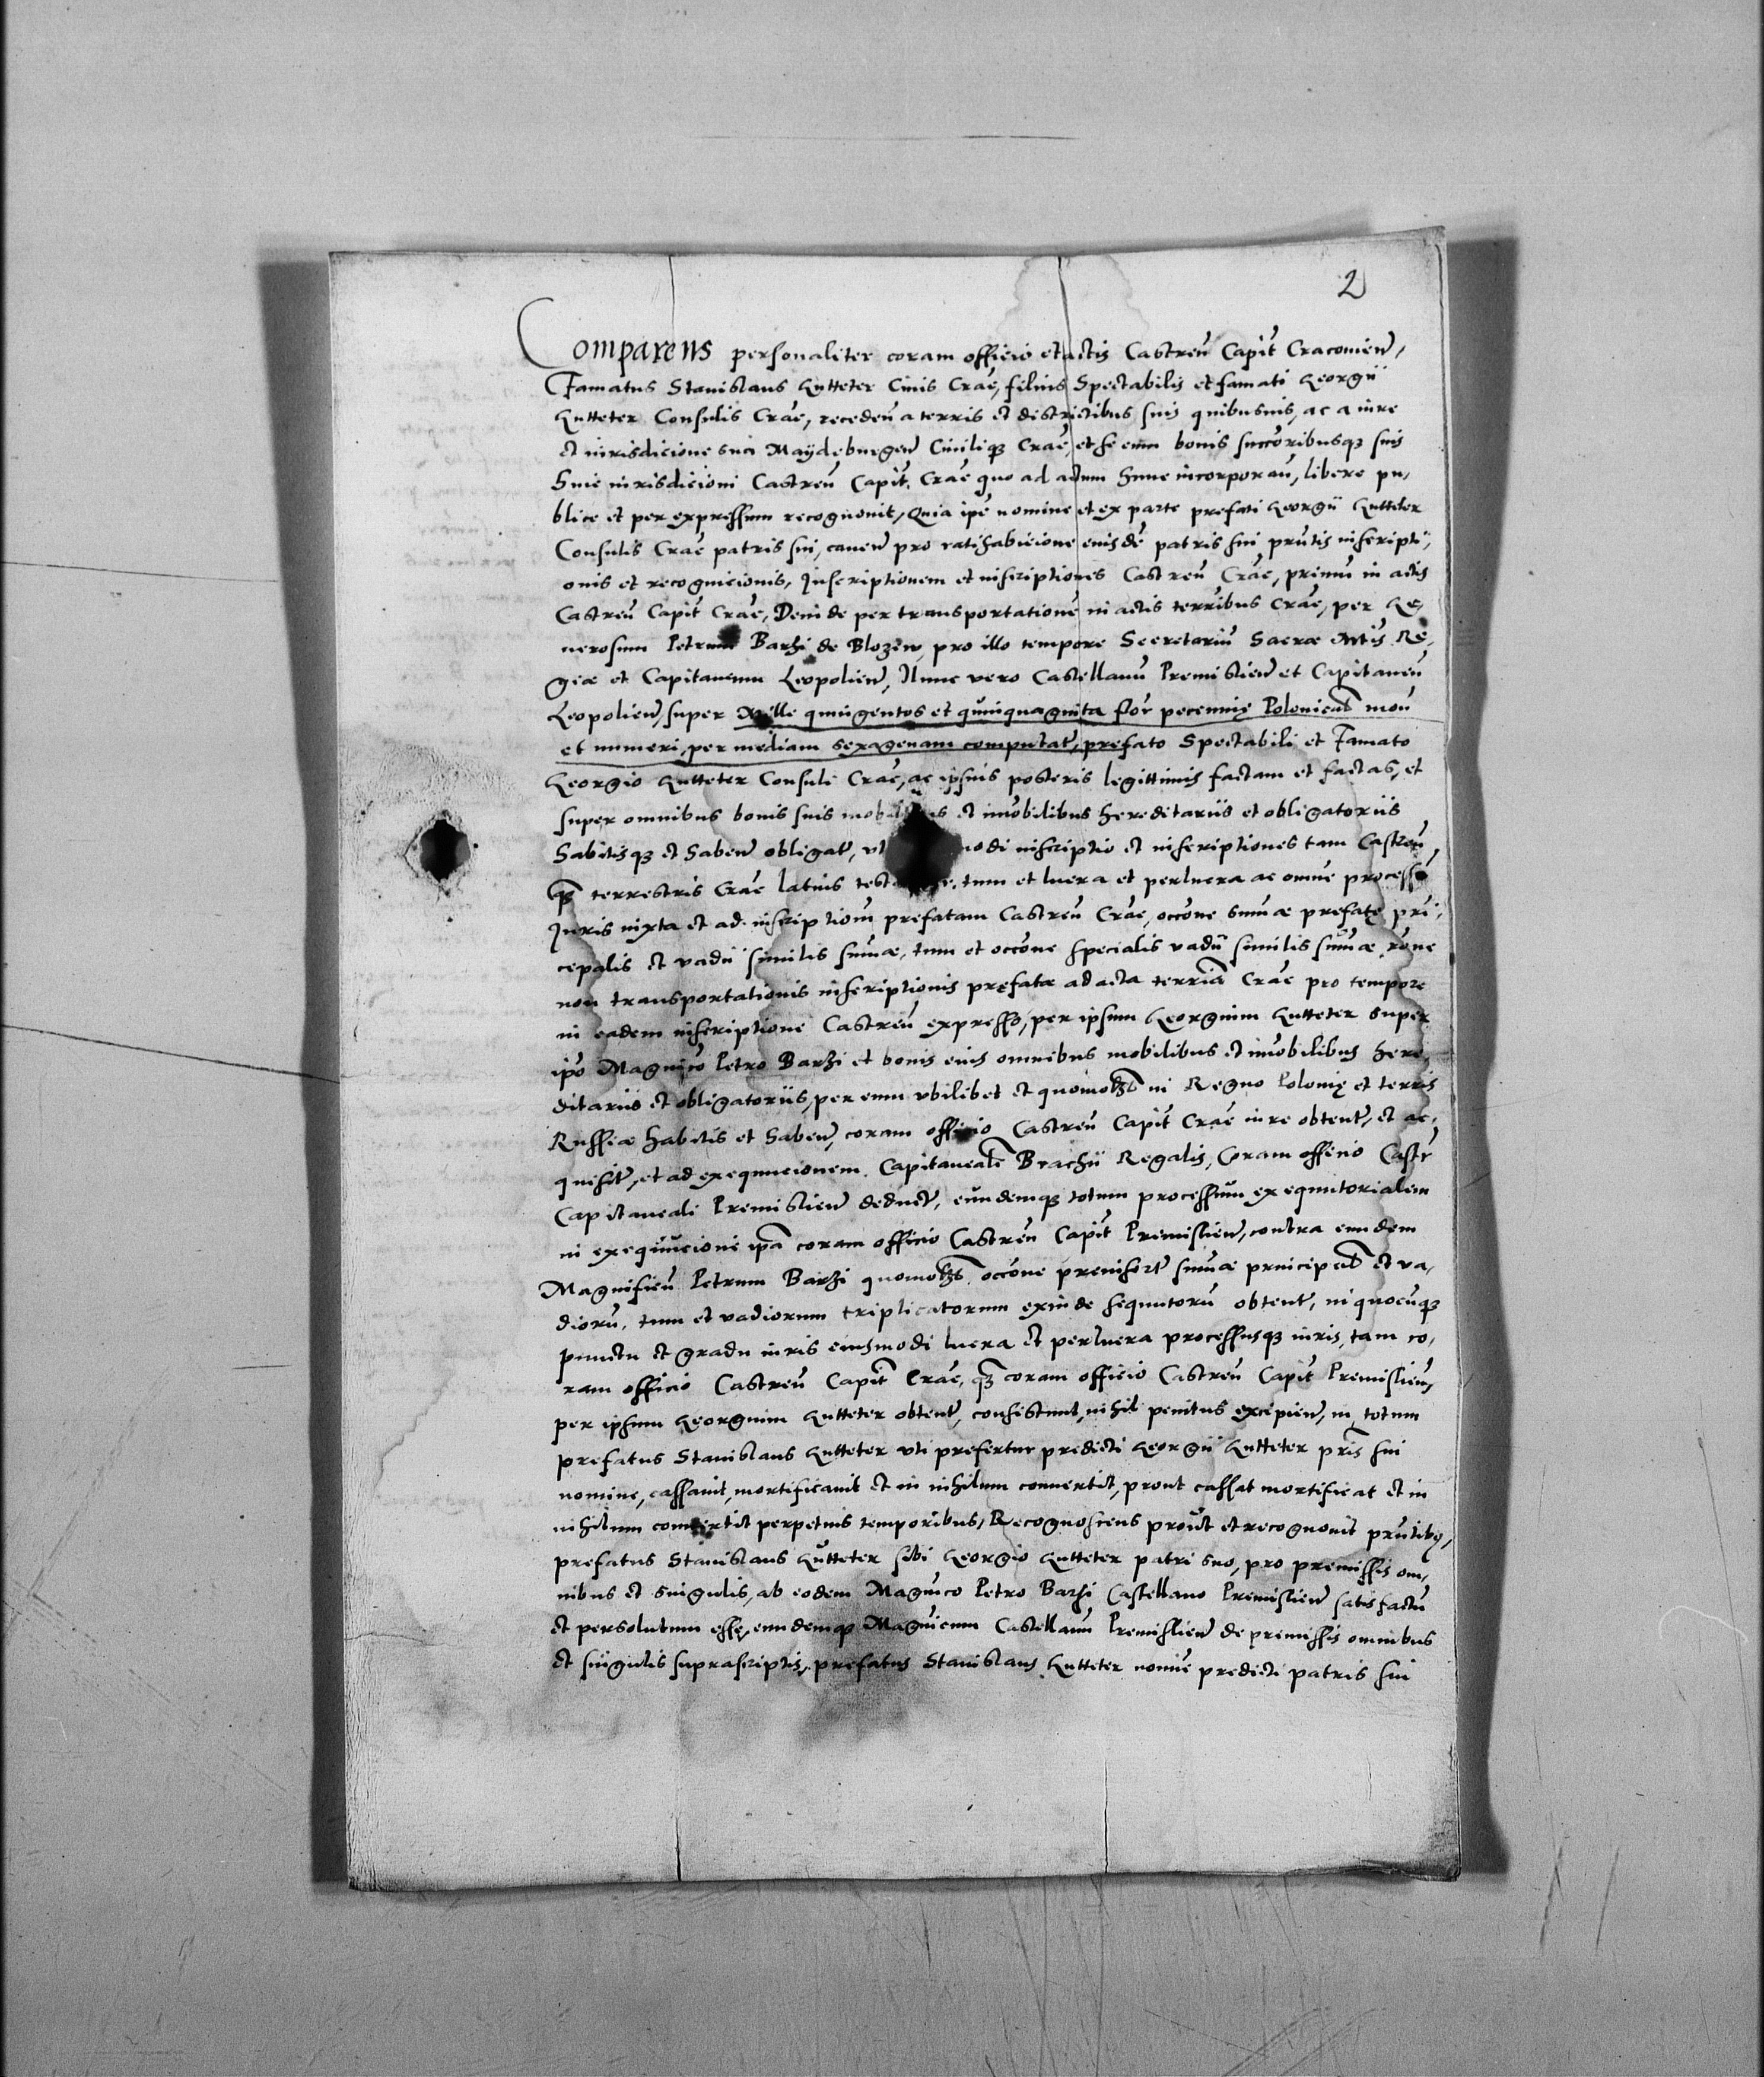 2
Comparens personaliter coram officio et actis Castren̄ Capit̄ Cracovien̄,
Famatus Stanislaus Gutteter Civis Crac̄, filius Spectabilis et famati Georgii
Gutteter Consulis Crac̄, receden̄ a terris et districtibus suis quibusvis, ac a iure
et iurisdicione sua Maydeburgen̄ Civiliq3 Crac̄, et se cum bonis succ̄oribusq3 suis
huic iurisdicioni Castren̄ Capit̄. Crac̄ quo ad actum hunc incorporan̄, libere pu,
blice et per expressum recognovit, Quia ip̄e nomine et ex parte prefati Georgii Gutteter
Consulis Crac̄ patris sui, caven̄ pro ratihabicione eiusdē patris sui pn̄tis inscripti,
onis et recognicionis, Inscriptionem et inscriptiones Castren̄ Crac̄, primū in actis
Castren̄ Capit̄ Crac̄, Deinde per transportationē in actis terr̄ibus Crac̄, per Ge,
nerosum Petrum Barzi de Blozew, pro illo tempore Secretariū Sacræ M̄tis Re,
giæ et Capitaneum Leopolien̄, Nunc vero Castellanū Premislien̄ et Capitaneū
Leopolien̄, super Mille quingentos et quinquaginta flor̄ pecunię Polonical̄ mon̄
et numeri, per mediam sexagenam computat̄, prefato Spectabili et Famato
Georgio Gutteter Consuli Crac̄, ac ipsius posteris legittimis factam et factas, et
super omnibus bonis suis mobilibus et im̄obilibus hereditariis et obligatoriis
habitisq3 et haben̄ obligat̄, ut modi inscriptio et inscriptiones tam Castren̄
q̄3 terrestris Crac̄ latius tum et lucra et perlucra ac omnē processū
Iuris iuxta et ad inscriptionē prefatam Castren̄ Crac̄, occ̄one sum̄æ prefatę prin̄,
cipalis et vadii similis sum̄æ, tum et occ̄one specialis vadii similis sum̄æ, r̄one
non transportationis inscriptionis prefatæ ad acta terr̄ia Crac̄ pro tempore
in eadem inscriptione Castren̄ expresso, per ipsum Georgium Gutteter super
ip̄o Magn̄ico Petro Barzi et bonis eius omnibus mobilibus et im̄obilibus here,
ditariis et obligatoriis, per eum ubilibet et quomodl̄t in Regno Polonię et terris
Russiæ habitis et haben̄, coram officio Castren̄ Capit̄ Crac̄ iure obtent̄, et ac,
quisit̄, et ad exequucionem Capitaneal̄e Brachii Regalis, Coram officio Castr̄
Capitaneali Premislien̄ deduct̄, eundemq3 totum processum exequutorialem
in exequucione ip̄a coram officio Castren̄ Capit̄ Premislien̄, contra eundem
Magnificū Petrum Barzi quomodl̄t occ̄one preinsert̄ sum̄æ principal̄ et va,
diorū, tum et vadiorum triplicatorum exinde sequutorū obtent̄, in quocūq3
punctu et gradu iuris eiusmodi lucra et perlucra processusq3 iuris, tam co,
ram officio Castren̄ Capit̄ Crac̄, q̄3 coram officio Castren̄ Capit̄ Premislien̄,
per ipsum Georgium Gutteter obtent̄, consistunt, nihil penitus excipien̄, in totum
prefatus Stanislaus Gutteter uti prefertur predicti Georgii Gutteter pr̄is sui
nomine, cassavit, mortificavit et in nihilum convertit, prout cassat mortificat et in
nihilum convertit perpetuis temporibus, Recognoscens prout et recognovit pn̄tibq,
prefatus Stanislaus Gutteter sibi Georgio Gutteter patri suo, pro premissis om,
nibus et singulis, ab eodem Magn̄ico Petro Barzi Castellano Premislien̄ satisfactū
et persolutum esse, eundemq3 Magn̄icum Castellanū Premislien̄ de premissis omnibus
et singulis suprascriptis, prefatus Stanislaus Gutteter nomīe predicti patris sui